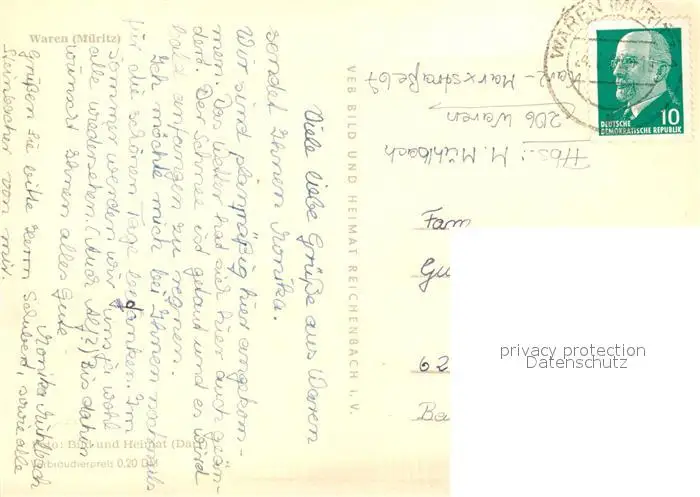 Waren (Müritz)
Viele liebe Grüße aus Waren
sendet Ihnen Monika.
Wir sind planmäßig hier angekom-
men. Das Wetter hat sich hier auch geän-
dert. Der Schnee ist getaut und es wird
bald anfangen zu regnen.
Ich möchte mich bei Ihnen nochmals
für die schönen Tage bedanken. Im
Sommer werden wir uns ja wohl
alle wiedersehen. (Auch Alj?) Bis dahin
wünscht Ihnen alles Gute
Monika Mühlbach
Grüßen Sie bitte Herrn Schubert, sowie alle
von mir.
Foto: Bild und Heimat
Verbraucherpreis 0,20 DM
VEB BILD UND HEIMAT REICHENBACH i. V.
WAREN (MÜRITZ)
10
DEUTSCHE
DEMOKRATISCHE REPUBLIK
Abs.: M. Mühlbach
206 Waren
Karl-Marxstraße 67
Fam
Gu
62
Ba
privacy protection
Datenschutz